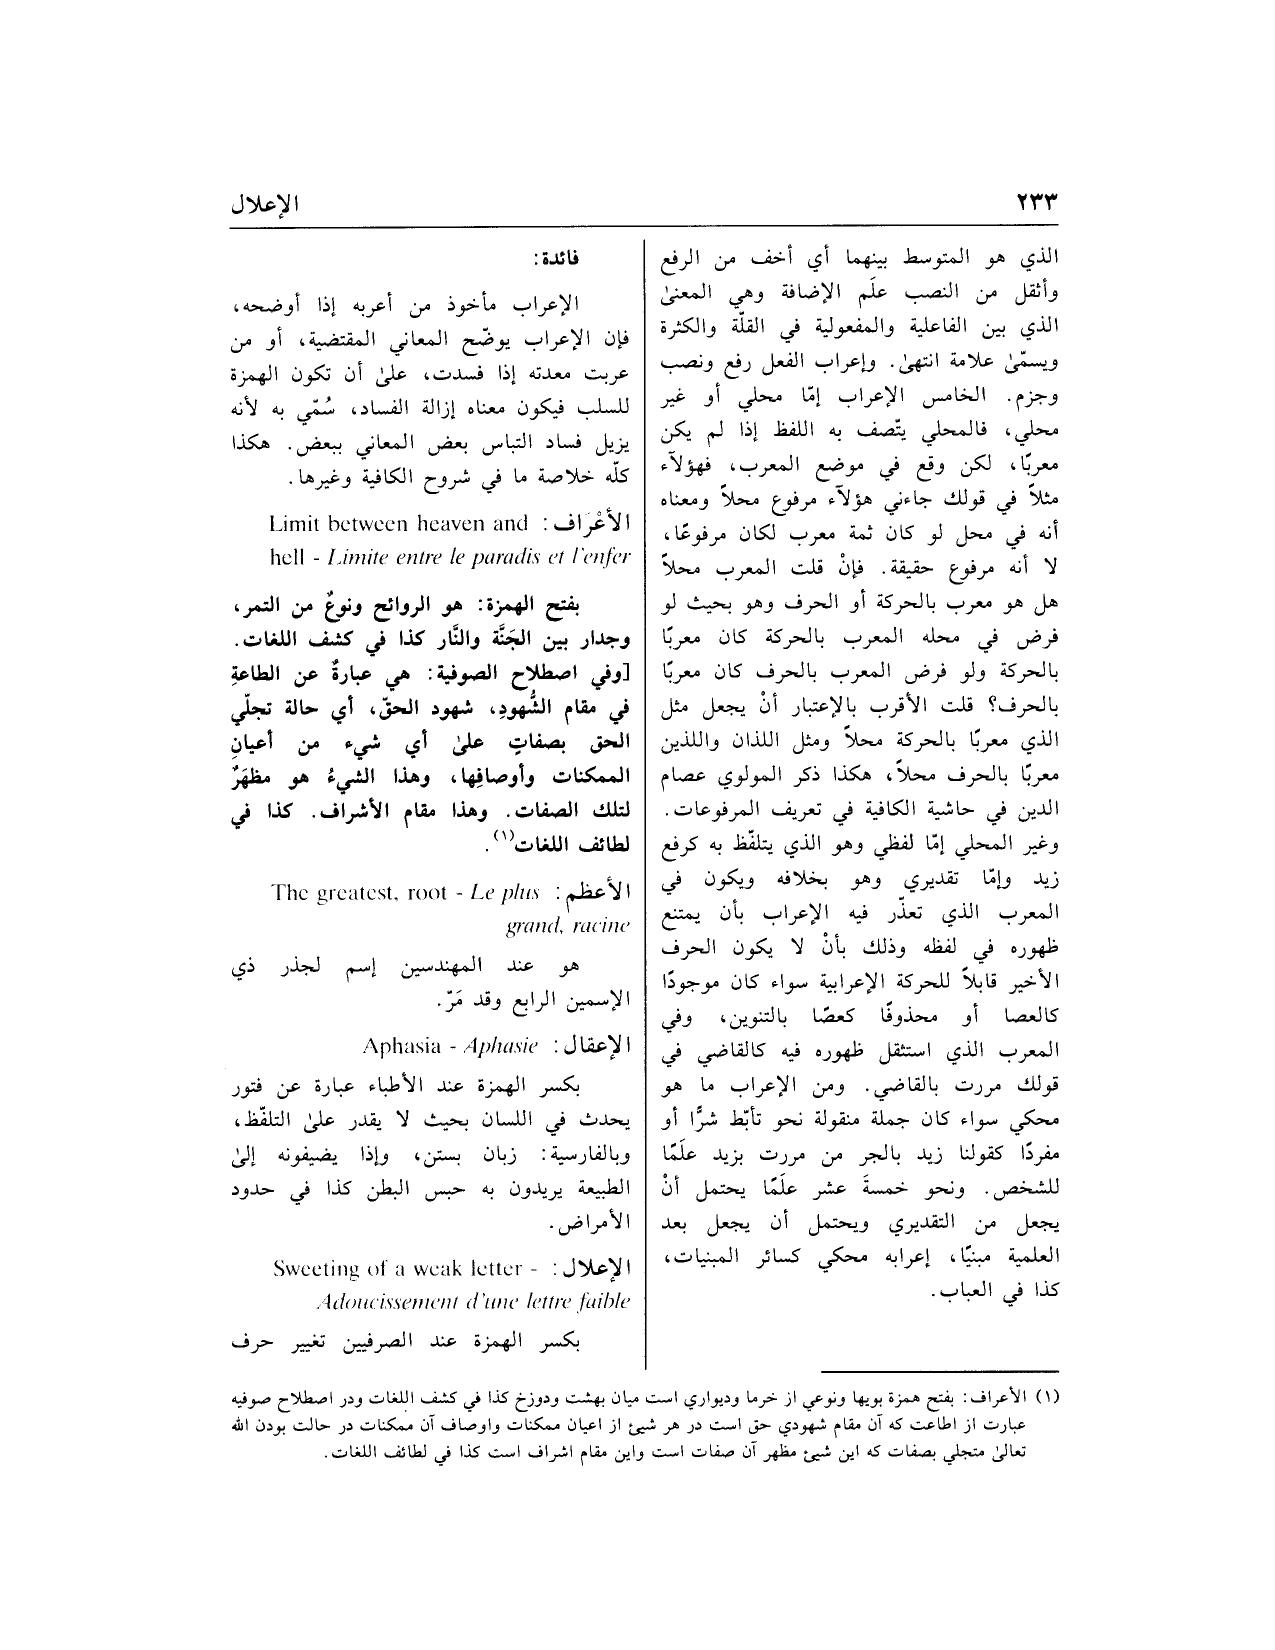 ٢٣٣
الإعلال
الذي هو المتوسط بينهما أي أخف من الرفع
وأثقل من النصب علَم الإضافة وهي المعنىٰ
الذي بين الفاعلية والمفعولية في القلّة والكثرة
ويسمّىٰ علامة انتهىٰ. وإعراب الفعل رفع ونصب
وجزم. الخامس الإعراب إمّا محلي أو غير
محلي، فالمحلي يتّصف به اللفظ إذا لم يكن
معربًا، لكن وقع في موضع المعرب، فهؤلآء
مثلاً في قولك جاءني هؤلآء مرفوع محلاً ومعناه
أنه في محل لو كان ثمة معرب لكان مرفوعًا،
لا أنه مرفوع حقيقة. فإنْ قلت المعرب محلاً
هل هو معرب بالحركة أو الحرف وهو بحيث لو
فرض في محله المعرب بالحركة كان معربًا
بالحركة ولو فرض المعرب بالحرف كان معربًا
بالحرف؟ قلت الأقرب بالإعتبار أنْ يجعل مثل
الذي معربًا بالحركة محلاً ومثل اللذان واللذين
معربًا بالحرف محلاً، هكذا ذكر المولوي عصام
الدين في حاشية الكافية في تعريف المرفوعات.
وغير المحلي إمّا لفظي وهو الذي يتلفّظ به كرفع
زيد وإمّا تقديري وهو بخلافه ويكون في
المعرب الذي تعذّر فيه الإعراب بأن يمتنع
ظهوره في لفظه وذلك بأنْ لا يكون الحرف
الأخير قابلاً للحركة الإعرابية سواء كان موجودًا
كالعصا أو محذوفًا كعصًا بالتنوين، وفي
المعرب الذي استثقل ظهوره فيه كالقاضي في
قولك مررت بالقاضي. ومن الإعراب ما هو
محكي سواء كان جملة منقولة نحو تأبّط شرًّا أو
مفردًا كقولنا زيد بالجر من مررت بزيد علَمًا
للشخص. ونحو خمسةَ عشر علَمًا يحتمل أنْ
يجعل من التقديري ويحتمل أن يجعل بعد
العلمية مبنيًا، إعرابه محكي كسائر المبنيات،
كذا في العباب.
فائدة:
الإعراب مأخوذ من أعربه إذا أوضحه،
فإن الإعراب يوضّح المعاني المقتضية، أو من
عربت معدته إذا فسدت، علىٰ أن تكون الهمزة
للسلب فيكون معناه إزالة الفساد، سُمّي به لأنه
يزيل فساد التباس بعض المعاني ببعض. هكذا
كلّه خلاصة ما في شروح الكافية وغيرها.
الأعْراف: Limit between heaven and
hell - Limite entre le paradis et l'enfer
بفتح الهمزة: هو الروائح ونوعٌ من التمر،
وجدار بين الجَنَّة والنَّار كذا في كشف اللغات.
[وفي اصطلاح الصوفية: هي عبارةٌ عن الطاعةِ
في مقام الشُّهودِ، شهود الحقّ، أي حالة تجلّي
الحق بصفاتٍ علىٰ أي شيء من أعيانِ
الممكنات وأوصافِها، وهذا الشيءُ هو مظهَرٌ
لتلك الصفات. وهذا مقام الأشراف. كذا في
لطائف اللغات(١).
الأعظم: The greatest, root - Le plus
grand, racine
هو عند المهندسين إسم لجذر ذي
الإسمين الرابع وقد مَرّ.
الإعقال: Aphasia - Aphasie
بكسر الهمزة عند الأطباء عبارة عن فتور
يحدث في اللسان بحيث لا يقدر علىٰ التلفّظ،
وبالفارسية: زبان بستن، وإذا يضيفونه إلىٰ
الطبيعة يريدون به حبس البطن كذا في حدود
الأمراض.
الإعلال: Sweeting of a weak letter -
Adoucissement d'une lettre faible
بكسر الهمزة عند الصرفيين تغيير حرف
(١) الأعراف: بفتح همزة بويها ونوعي از خرما وديواري است ميان بهشت ودوزخ كذا في كشف اللغات ودر اصطلاح صوفيه
عبارت از اطاعت كه آن مقام شهودي حق است در هر شيئ از اعيان ممكنات واوصاف آن ممكنات در حالت بودن الله
تعالىٰ متجلي بصفات كه اين شيئ مظهر آن صفات است واين مقام اشراف است كذا في لطائف اللغات.